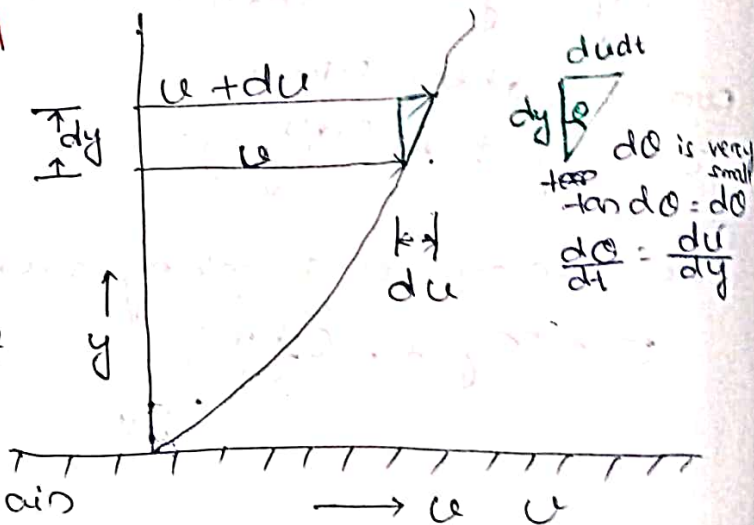 dudt
u + du
dy
dy
θ
u
dθ is very
small
tan dθ = dθ
dθ/dt = du/dy
du
y
ain
u u